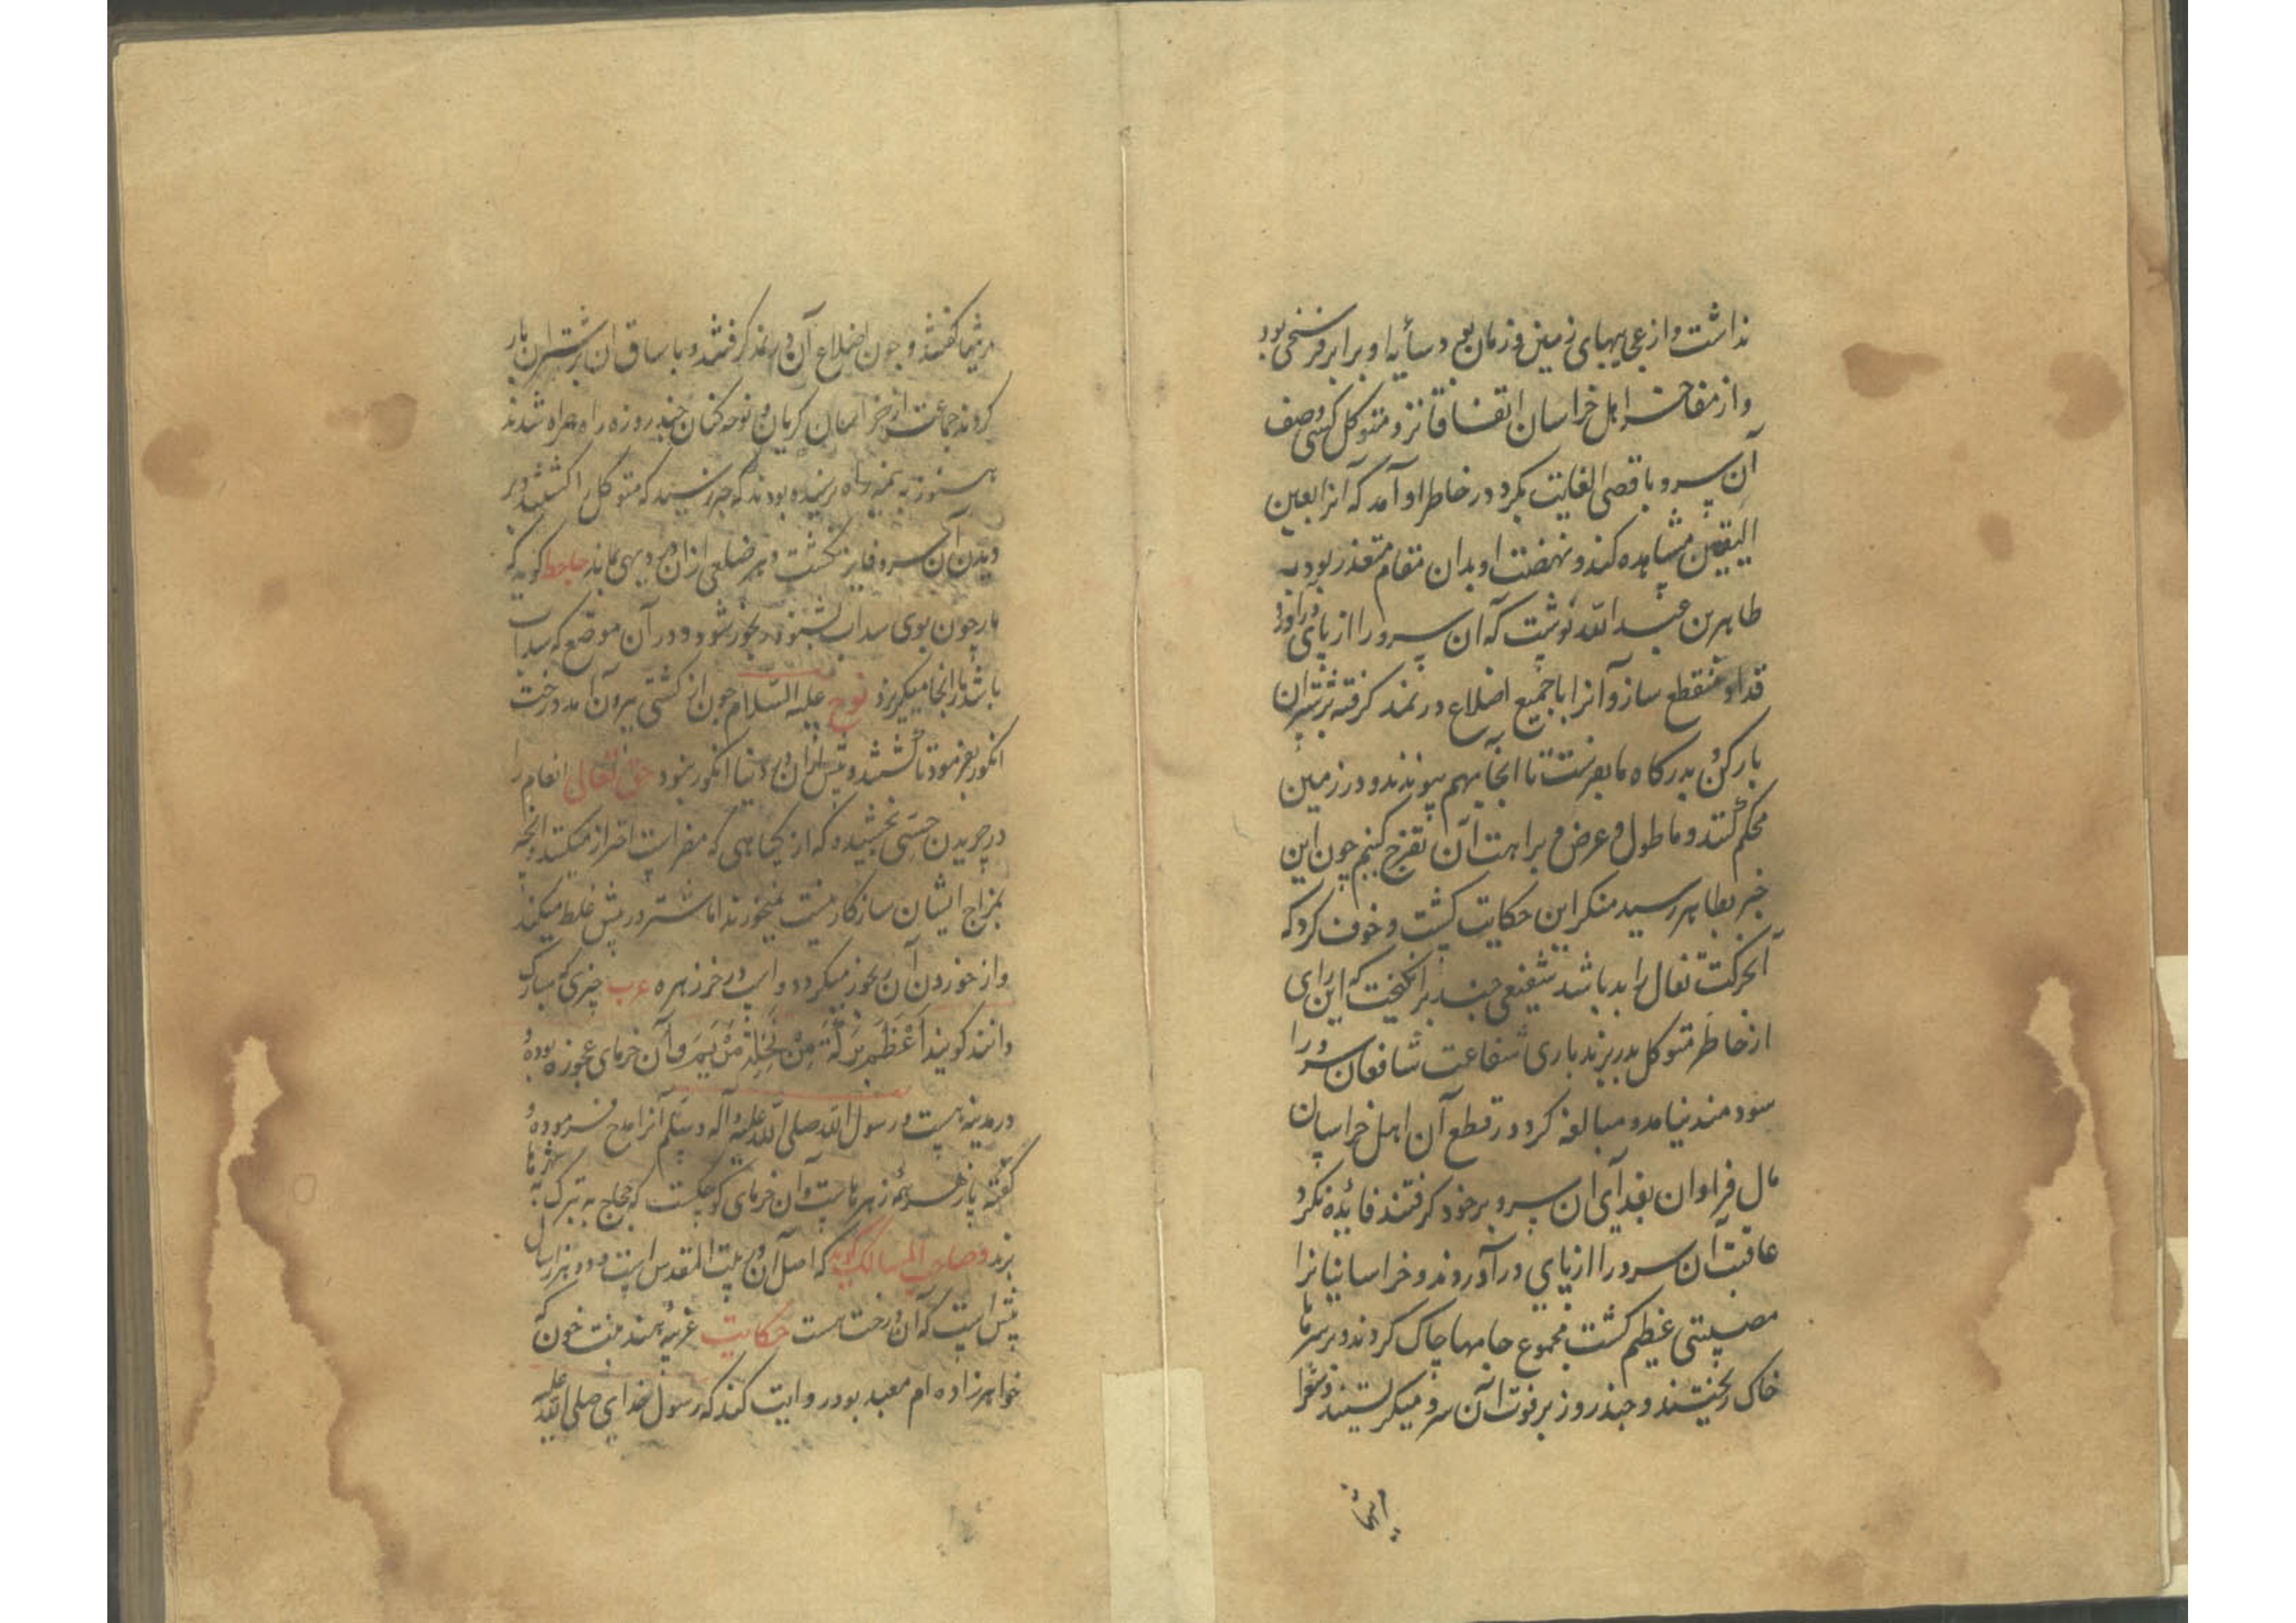 نداشت و از عجایبهای زمین و زمان بود و سایه او برابر فرسخی بود
و از مفاخر اهل خراسان اتفاقا نزد متوکل کسی وصف
آن سرو باقصی الغایت بکرد در خاطر او آمد که آنرا بعین
الیقین مشاهده کند و نهضت او بدان مقام متعذر بود به
طاهر بن عبد الله نوشت که آن سرو را از پای درآورد
قد او منقطع ساز و آنرا با جمیع اضلاع در نمد گرفته بر شتران
بار کن بدرگاه ما بفرست تا اینجا بهم پیوندند و در زمین
محکم کنند و ما طول و عرض و براهت آن تفرج کنیم چون این
خبر بطاهر رسید منکر این حکایت گشت و خوف کرد که
آنحرکت تفال را بد باشد شفیعی چند برانگیخت که این رای
از خاطر متوکل بدر برند باری شفاعت شافعان سرو را
سودمند نیامد و مبالغه کرد در قطع آن اهل خراسان
مال فراوان بفدای آن سرو بر خود گرفتند فائده نکرد
عاقبت آن سرو را از پای درآوردند و خراسانیانرا
مصیبتی عظیم گشت مجموع جامها چاک کردند و بر سرها
خاک ریختند و چند روز بر فوت آن سرو میگریستند و شعرا
مرثیها گفتند و چون اضلاع آن در نمد گرفتند و با ساق آن بر شتران بار
کردند جماعتی از خراسان گریان و نوحه کنان چند روزه راه همراه شدند
هنوز به نیمه راه نرسیده بودند که خبر رسید که متوکل را کشتند و بر
دیدن آن سرو فایز نگشت و هر ضلعی از آن در دیهی بماند جاحظ گوید که
مار چون بوی سداب بشنود رنجور شود و در آن موضع که سداب
باشد از آنجا میگریزد نوح علیه السلام چون از کشتی بیرون آمد درخت
انگور بفرمود تا کشتند و پیش از آن در دنیا انگور نبود حق تعالی انعام را
در چریدن حسی بخشیده که از گیاهی که مضر است احتراز میکنند و آنچه
بمزاج ایشان سازگار نیست نمیخورند اما شتر در پیش غلط میکند
و از خوردن آن رنجور میگردد و اسپ در خرزهره عرب چیزی که مبارک
دانند گویند اعظم برکة من نخلة مریم و آن خرمای عجوزه بوده و
در مدینه است و رسول الله صلی الله علیه و آله و سلم آنرا مدح فرموده و
گفته پازهر همه زهرهاست و آن خرمای کوچکست که حجاج به تبرک به شهرها
برند و صاحب المسالک گوید که اصل آن در بیت المقدس است و دو هزار سال
پیش است که آن درخت هست حکایت غریبه هند بنت خون که
خواهرزاده ام معبد بود روایت کند که رسول خدای صلی الله علیه